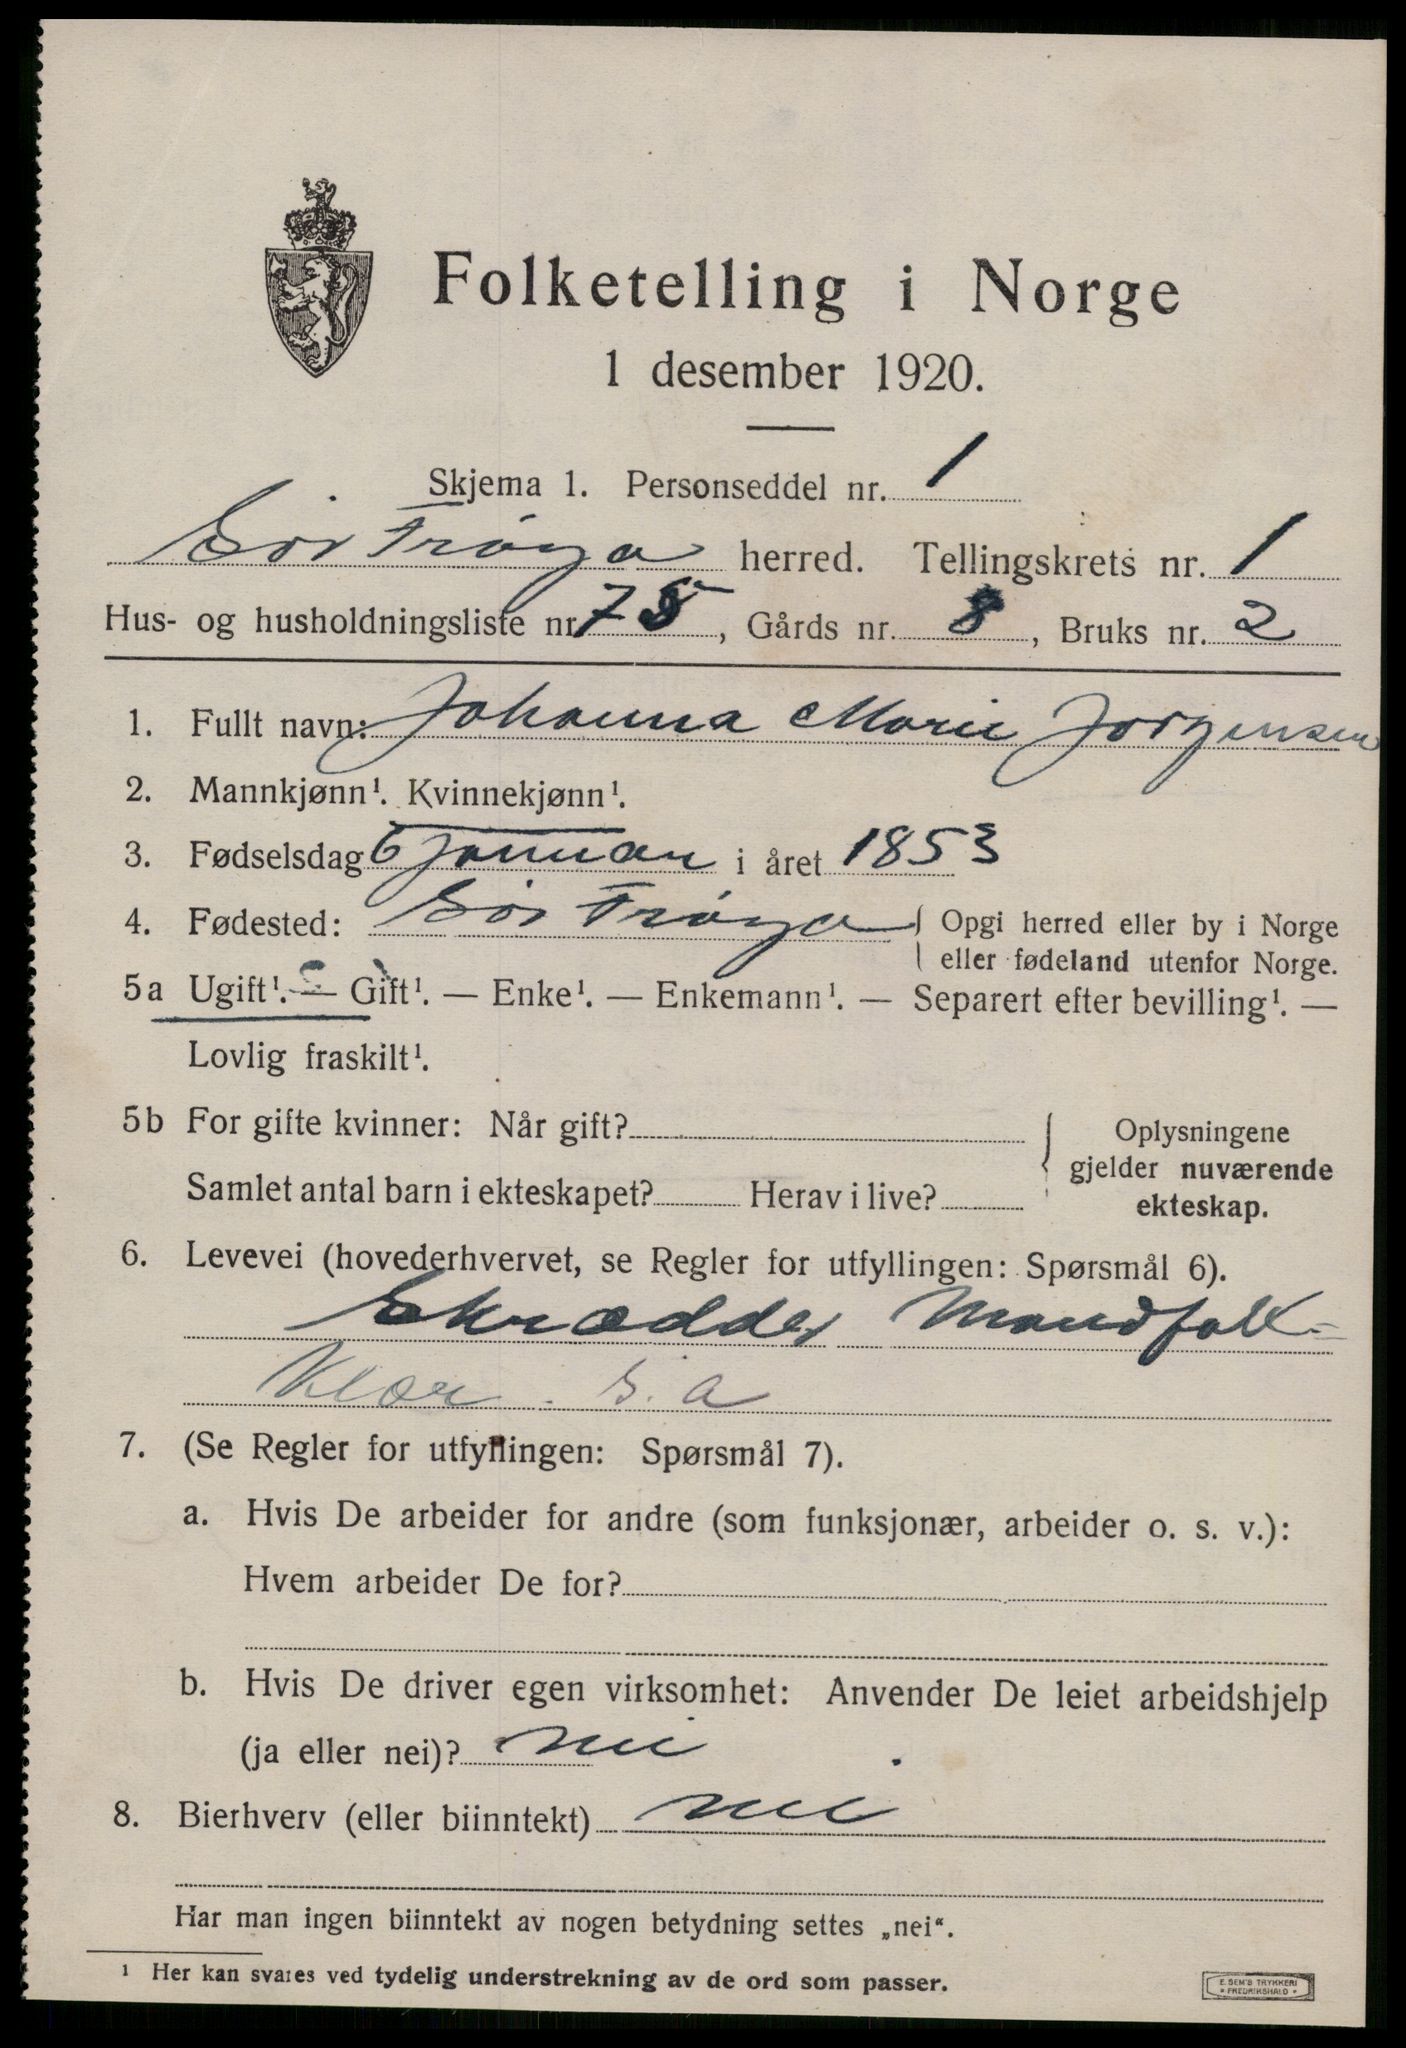 Folketelling i Norge
1 desember 1920.
Skjema 1. Personseddel nr. 1
Sör Fröya herred. Tellingskrets nr. 1
Hus- og husholdningsliste nr. 75, Gårds nr. 8, Bruks nr. 2
1. Fullt navn: Johanna Marie Jorgensen
2. Mannkjønn¹. Kvinnekjønn¹.
3. Fødselsdag 6 januar i året 1853
4. Fødested: Sör Fröya { Opgi herred eller by i Norge
eller fødeland utenfor Norge.
5a Ugift¹. — Gift¹. — Enke¹. — Enkemann¹. — Separert efter bevilling¹. —
Lovlig fraskilt¹.
5b For gifte kvinner: Når gift?
Samlet antal barn i ekteskapet? Herav i live?
{ Oplysningene
gjelder nuværende
ekteskap.
6. Levevei (hovederhvervet, se Regler for utfyllingen: Spørsmål 6).
Skrædder Mandfolk-
Klær. s. a
7. (Se Regler for utfyllingen: Spørsmål 7).
a. Hvis De arbeider for andre (som funksjonær, arbeider o. s. v.):
Hvem arbeider De for?
b. Hvis De driver egen virksomhet: Anvender De leiet arbeidshjelp
(ja eller nei)? nei
8. Bierhverv (eller biinntekt) nei
Har man ingen biinntekt av nogen betydning settes „nei“.
¹ Her kan svares ved tydelig understrekning av de ord som passer.
E. SEM'S TRYKKERI
• FREDRIKSHALD •